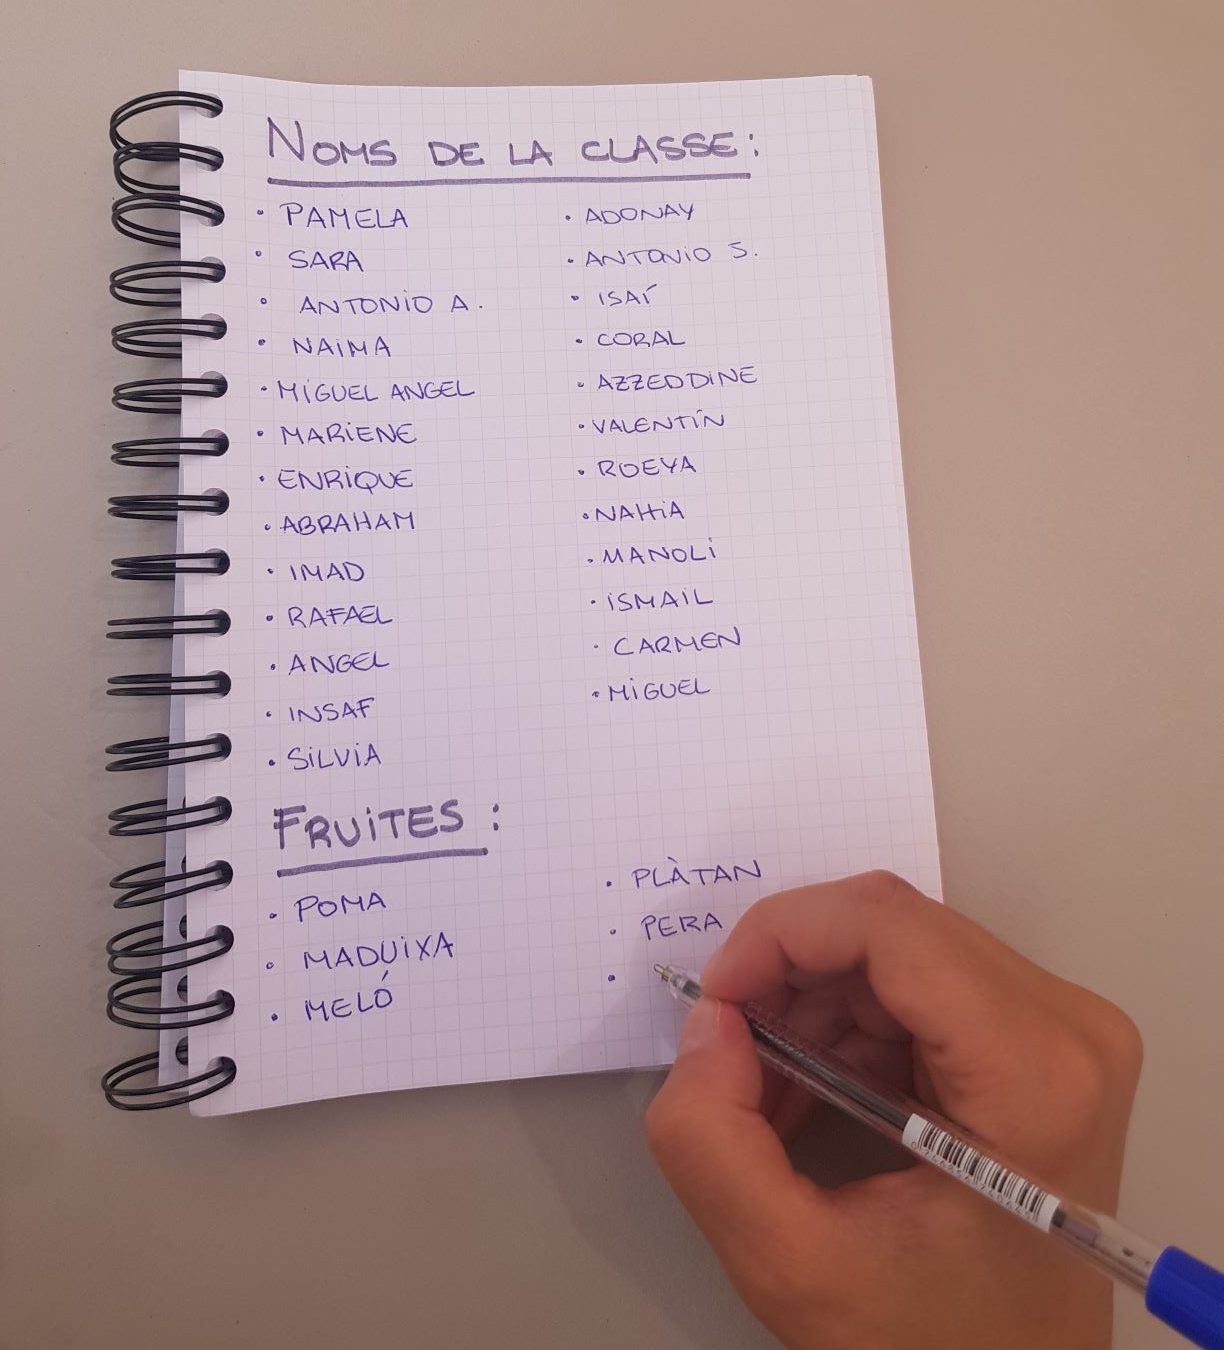 NOMS DE LA CLASSE:
• PAMELA
• SARA
• ANTONIO A.
• NAIMA
• MIGUEL ANGEL
• MARIENE
• ENRIQUE
• ABRAHAM
• IMAD
• RAFAEL
• ANGEL
• INSAF
• SILVIA
• ADONAY
• ANTONIO S.
• ISAÍ
• CORAL
• AZZEDDINE
• VALENTÍN
• ROEYA
• NAHIA
• MANOLI
• ISMAIL
• CARMEN
• MIGUEL
FRUITES:
• POMA
• MADUIXA
• MELÓ
• PLÀTAN
• PERA
•